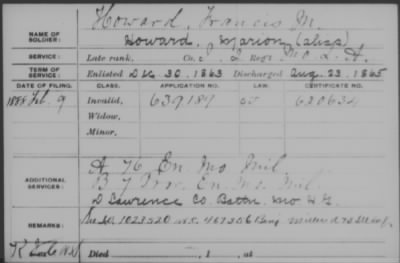 Howard, Francis M.
NAME OF SOLDIER: Howard, Marion (alias)
SERVICE: Late rank, Co. 2 Regt. Mo L. A.
TERM OF SERVICE: Enlisted Dec. 30, 1863 Discharged Aug. 23, 1865
DATE OF FILING. CLASS. APPLICATION NO. LAW. CERTIFICATE NO.
1888 Feb. 9 Invalid, 639187 620634
Widow,
Minor,
A 76 En Mo Mil
ADDITIONAL SERVICES: B 7 Prov. En. Mo. Mil.
D Lawrence Co. Battn. Mo H. G.
REMARKS: 1023520 467356
Died , 1 , at